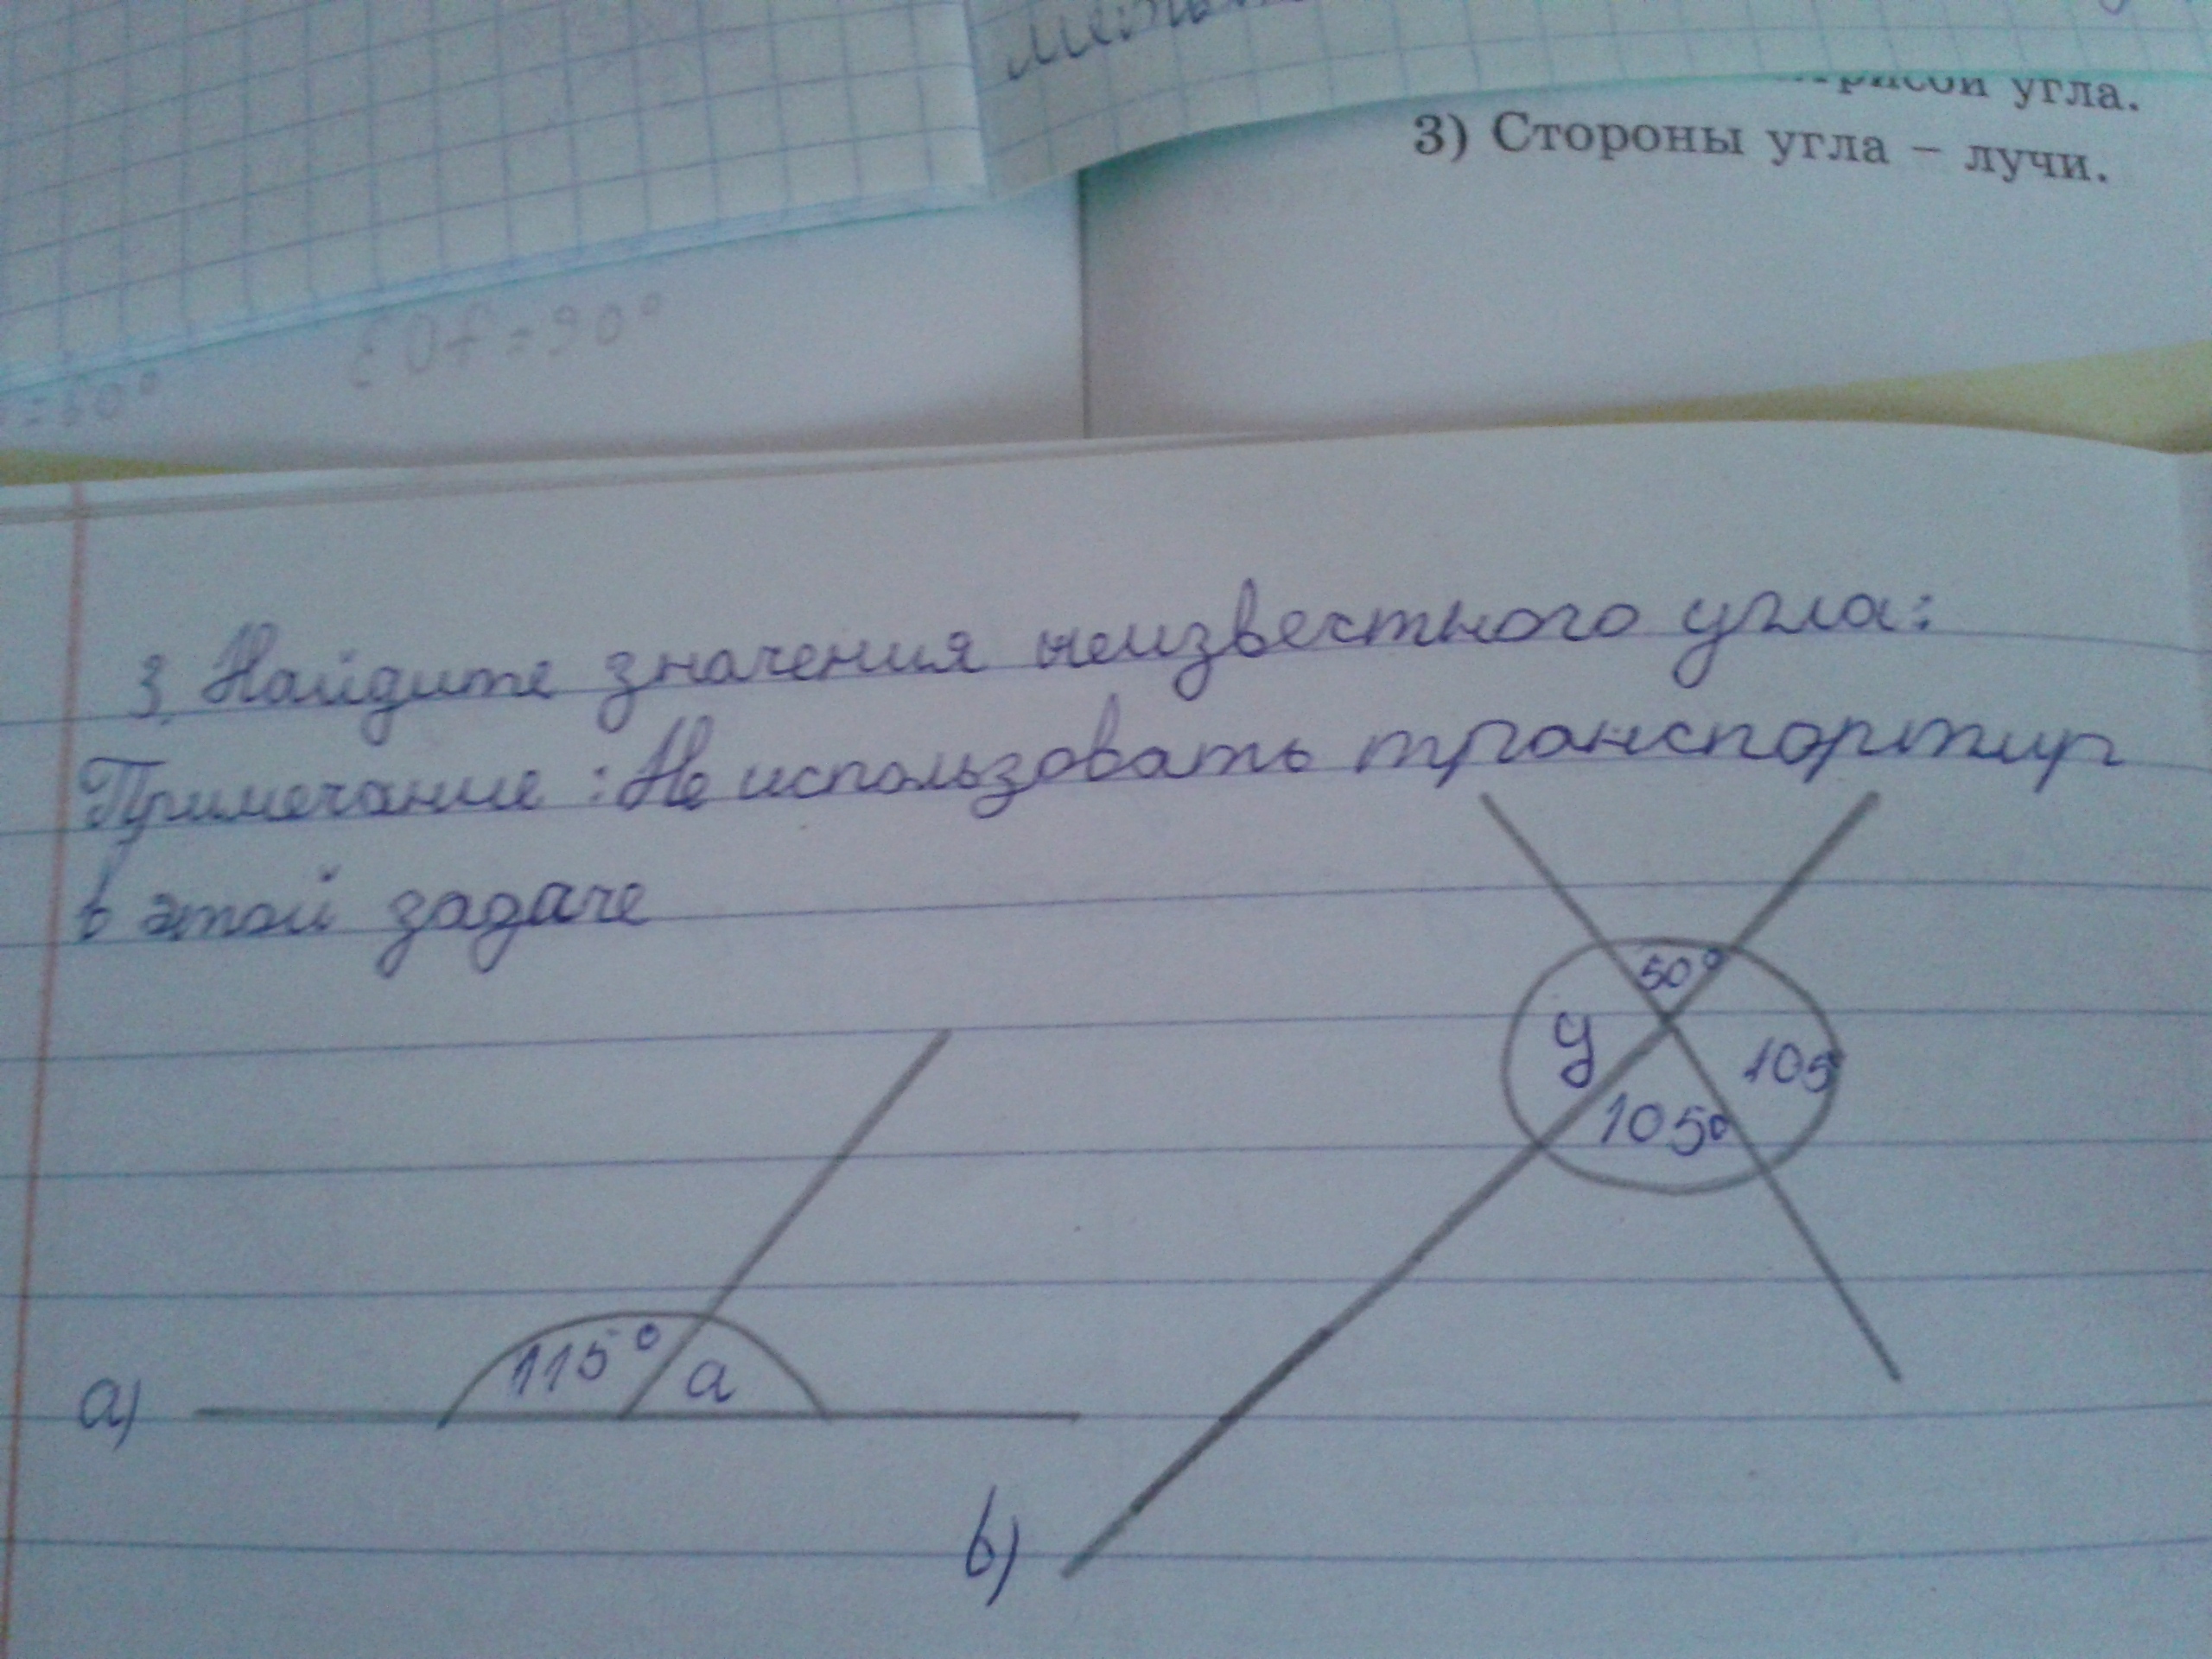 угла.
3) Стороны угла – лучи.
EOF=90°
=90°
3. Найдите значения неизвестного угла:
Примечание: Не использовать транспортир
в этой задаче
50°
y
105
105°
115°
a
a)
b)